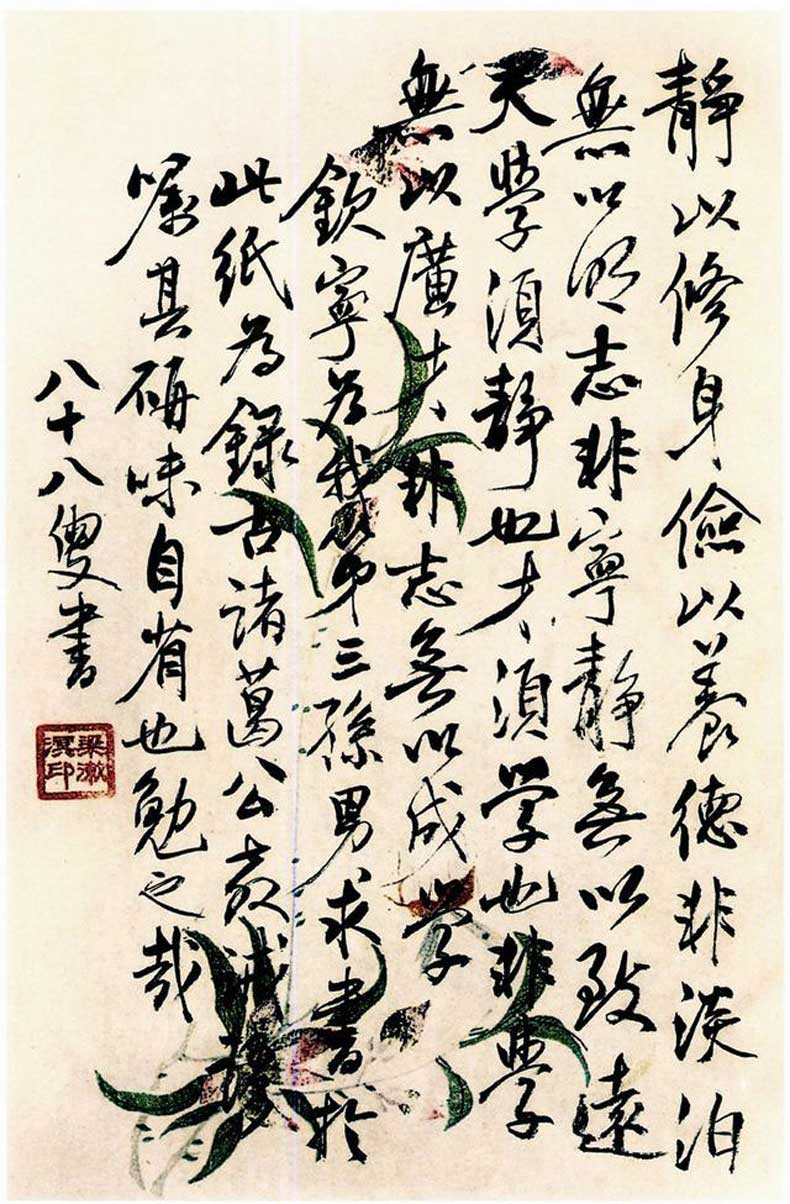 靜以修身儉以養德非淡泊
無以明志非寧靜無以致遠
夫學須靜也才須學也非學
無以廣才非志無以成學
欽寧為我第三孫男求書於
此紙為錄古諸葛公教誡
囑其研味自省也勉之哉
八十八叟書
梁漱溟印